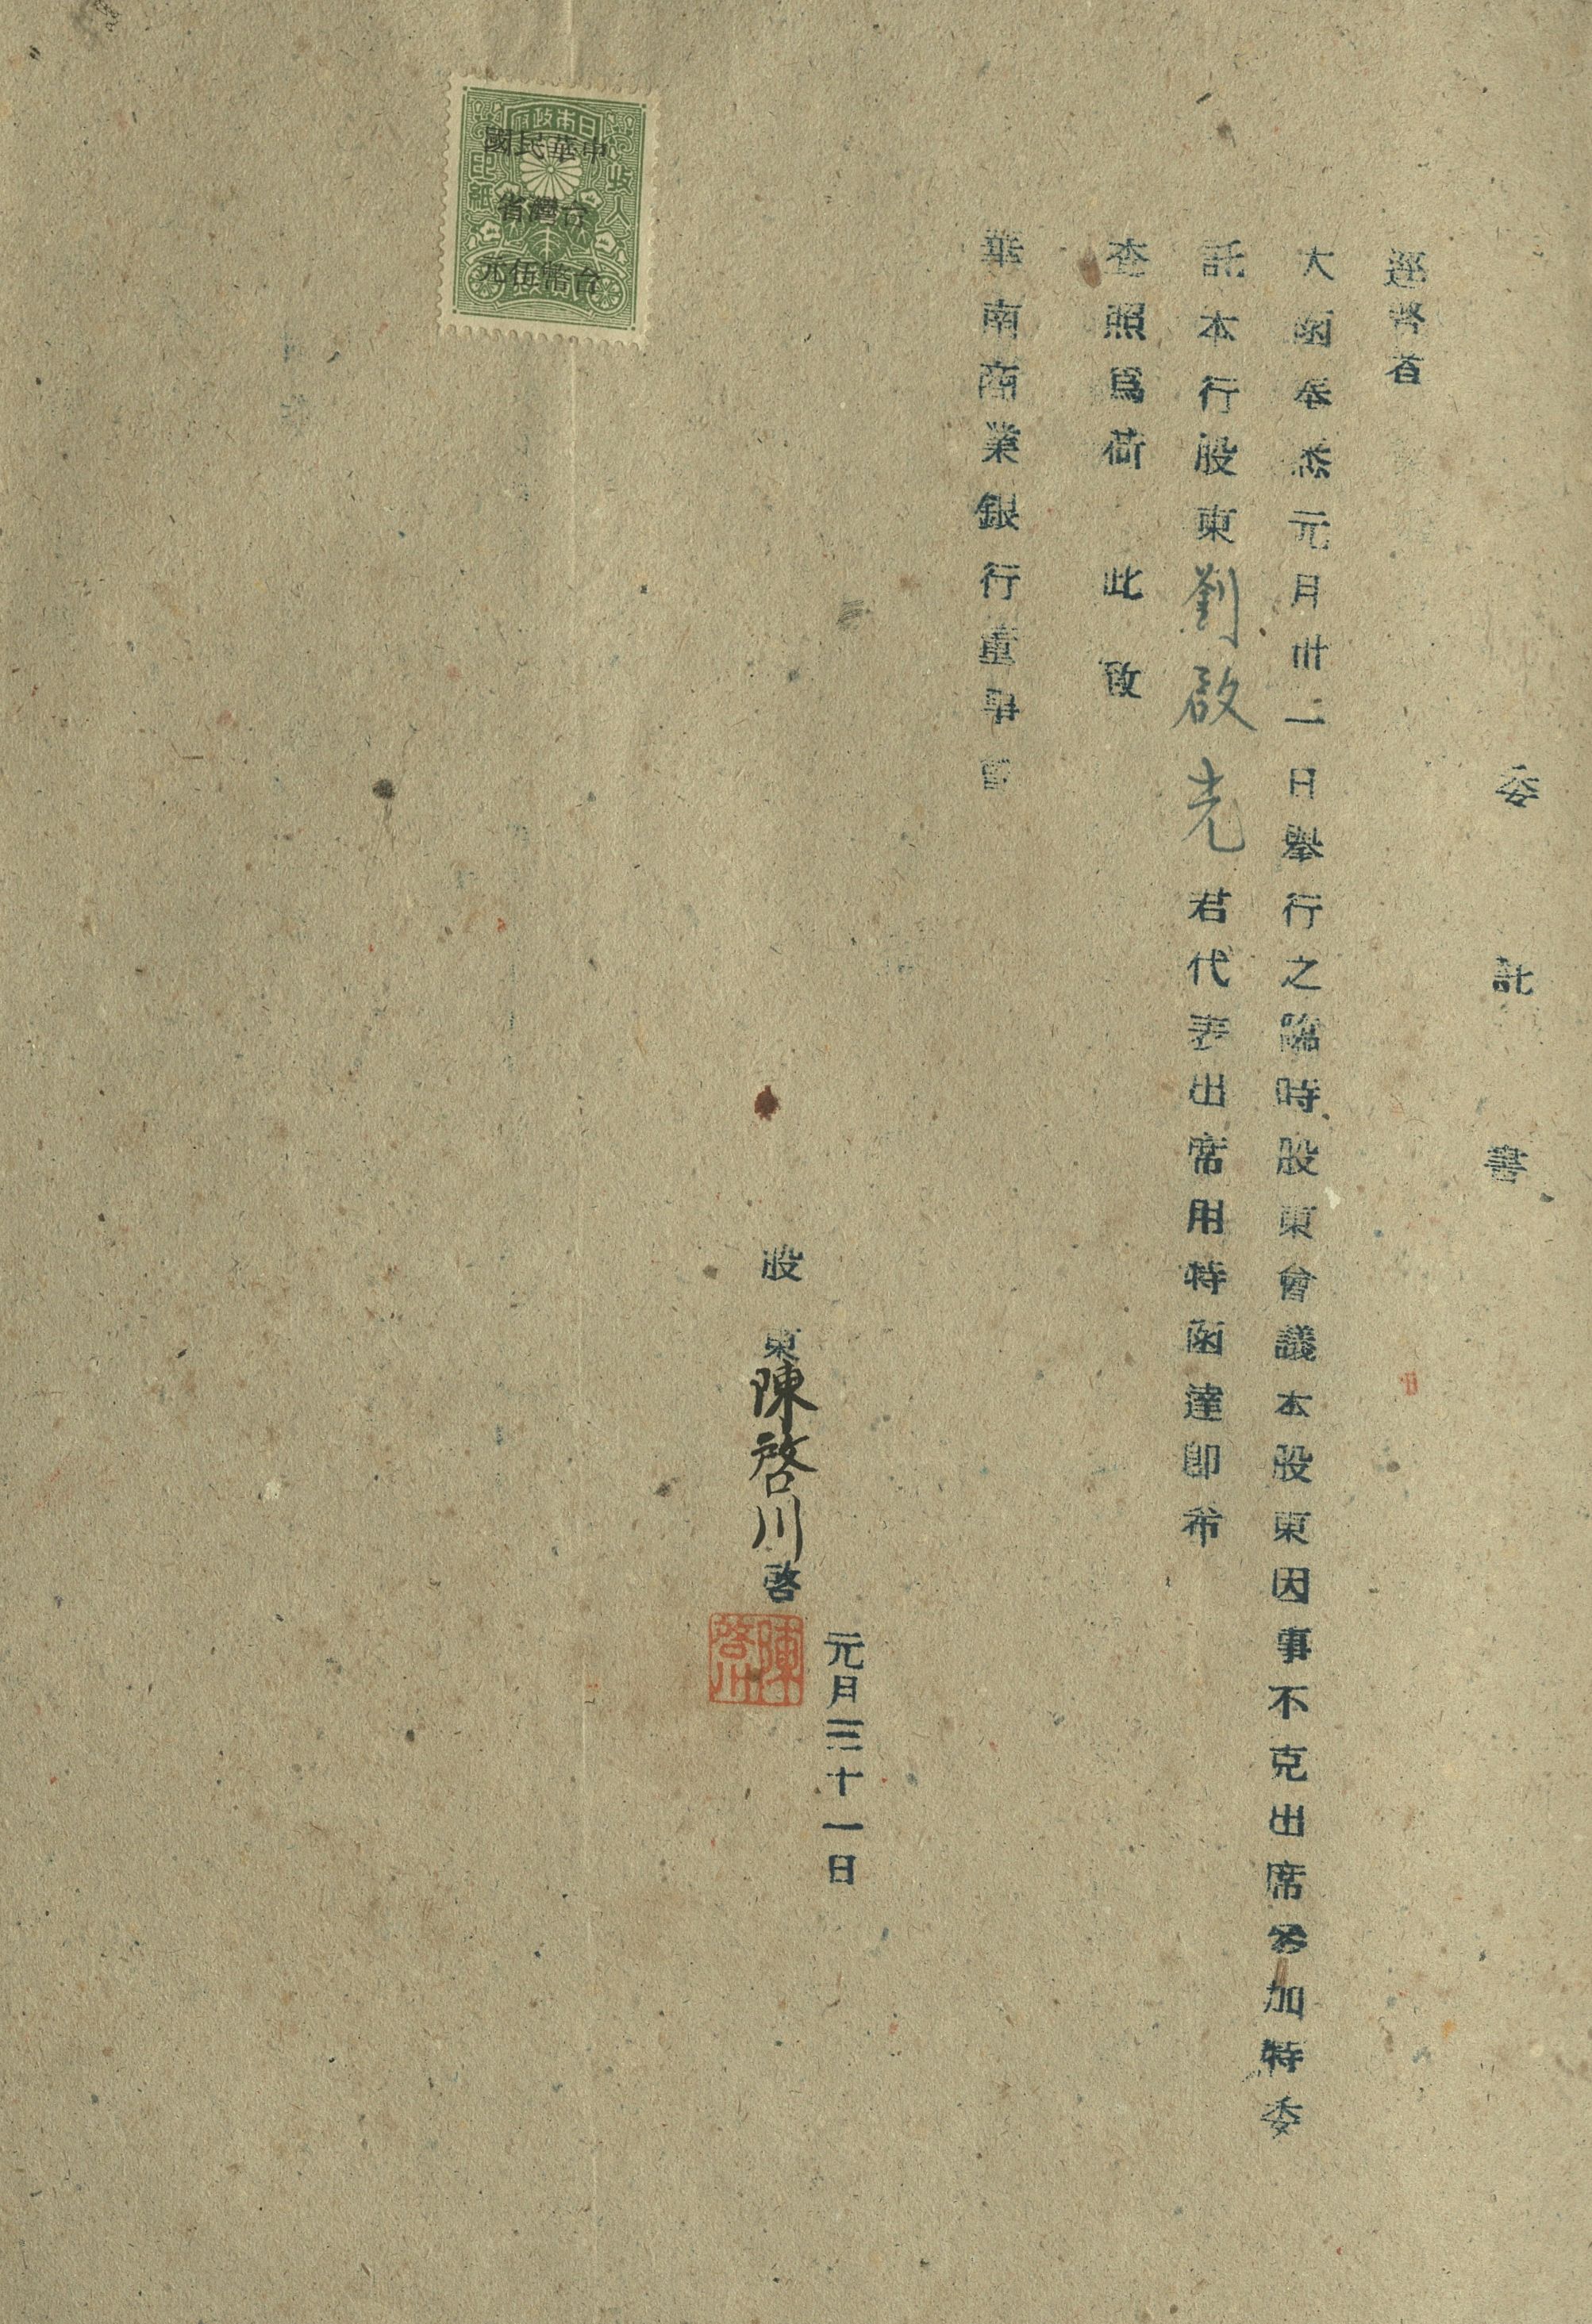 委託書
逕啓者
大函奉悉元月卅一日舉行之臨時股東會議本股東因事不克出席參加特委
託本行股東劉啟光君代表出席用特函達卽希
查照爲荷 此致
華南商業銀行董事會
元月三十一日
股東陳啓川啓
陳啓川
日本政府
收入印紙
中華民國
台灣省
台幣伍元